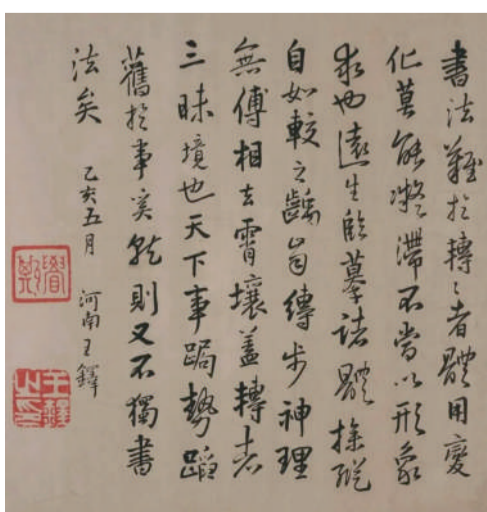 書法難於轉轉者體用變
化莫能凝滯不當以形象
求也遠生臨摹諸體操縱
自如較之齲齒縳步神理
無傅相去霄壤蓋轉者
三昧境也天下事跼勢蹈
舊於事奚就則又不獨書
法矣
乙亥五月 河南王鐸
王鐸之印